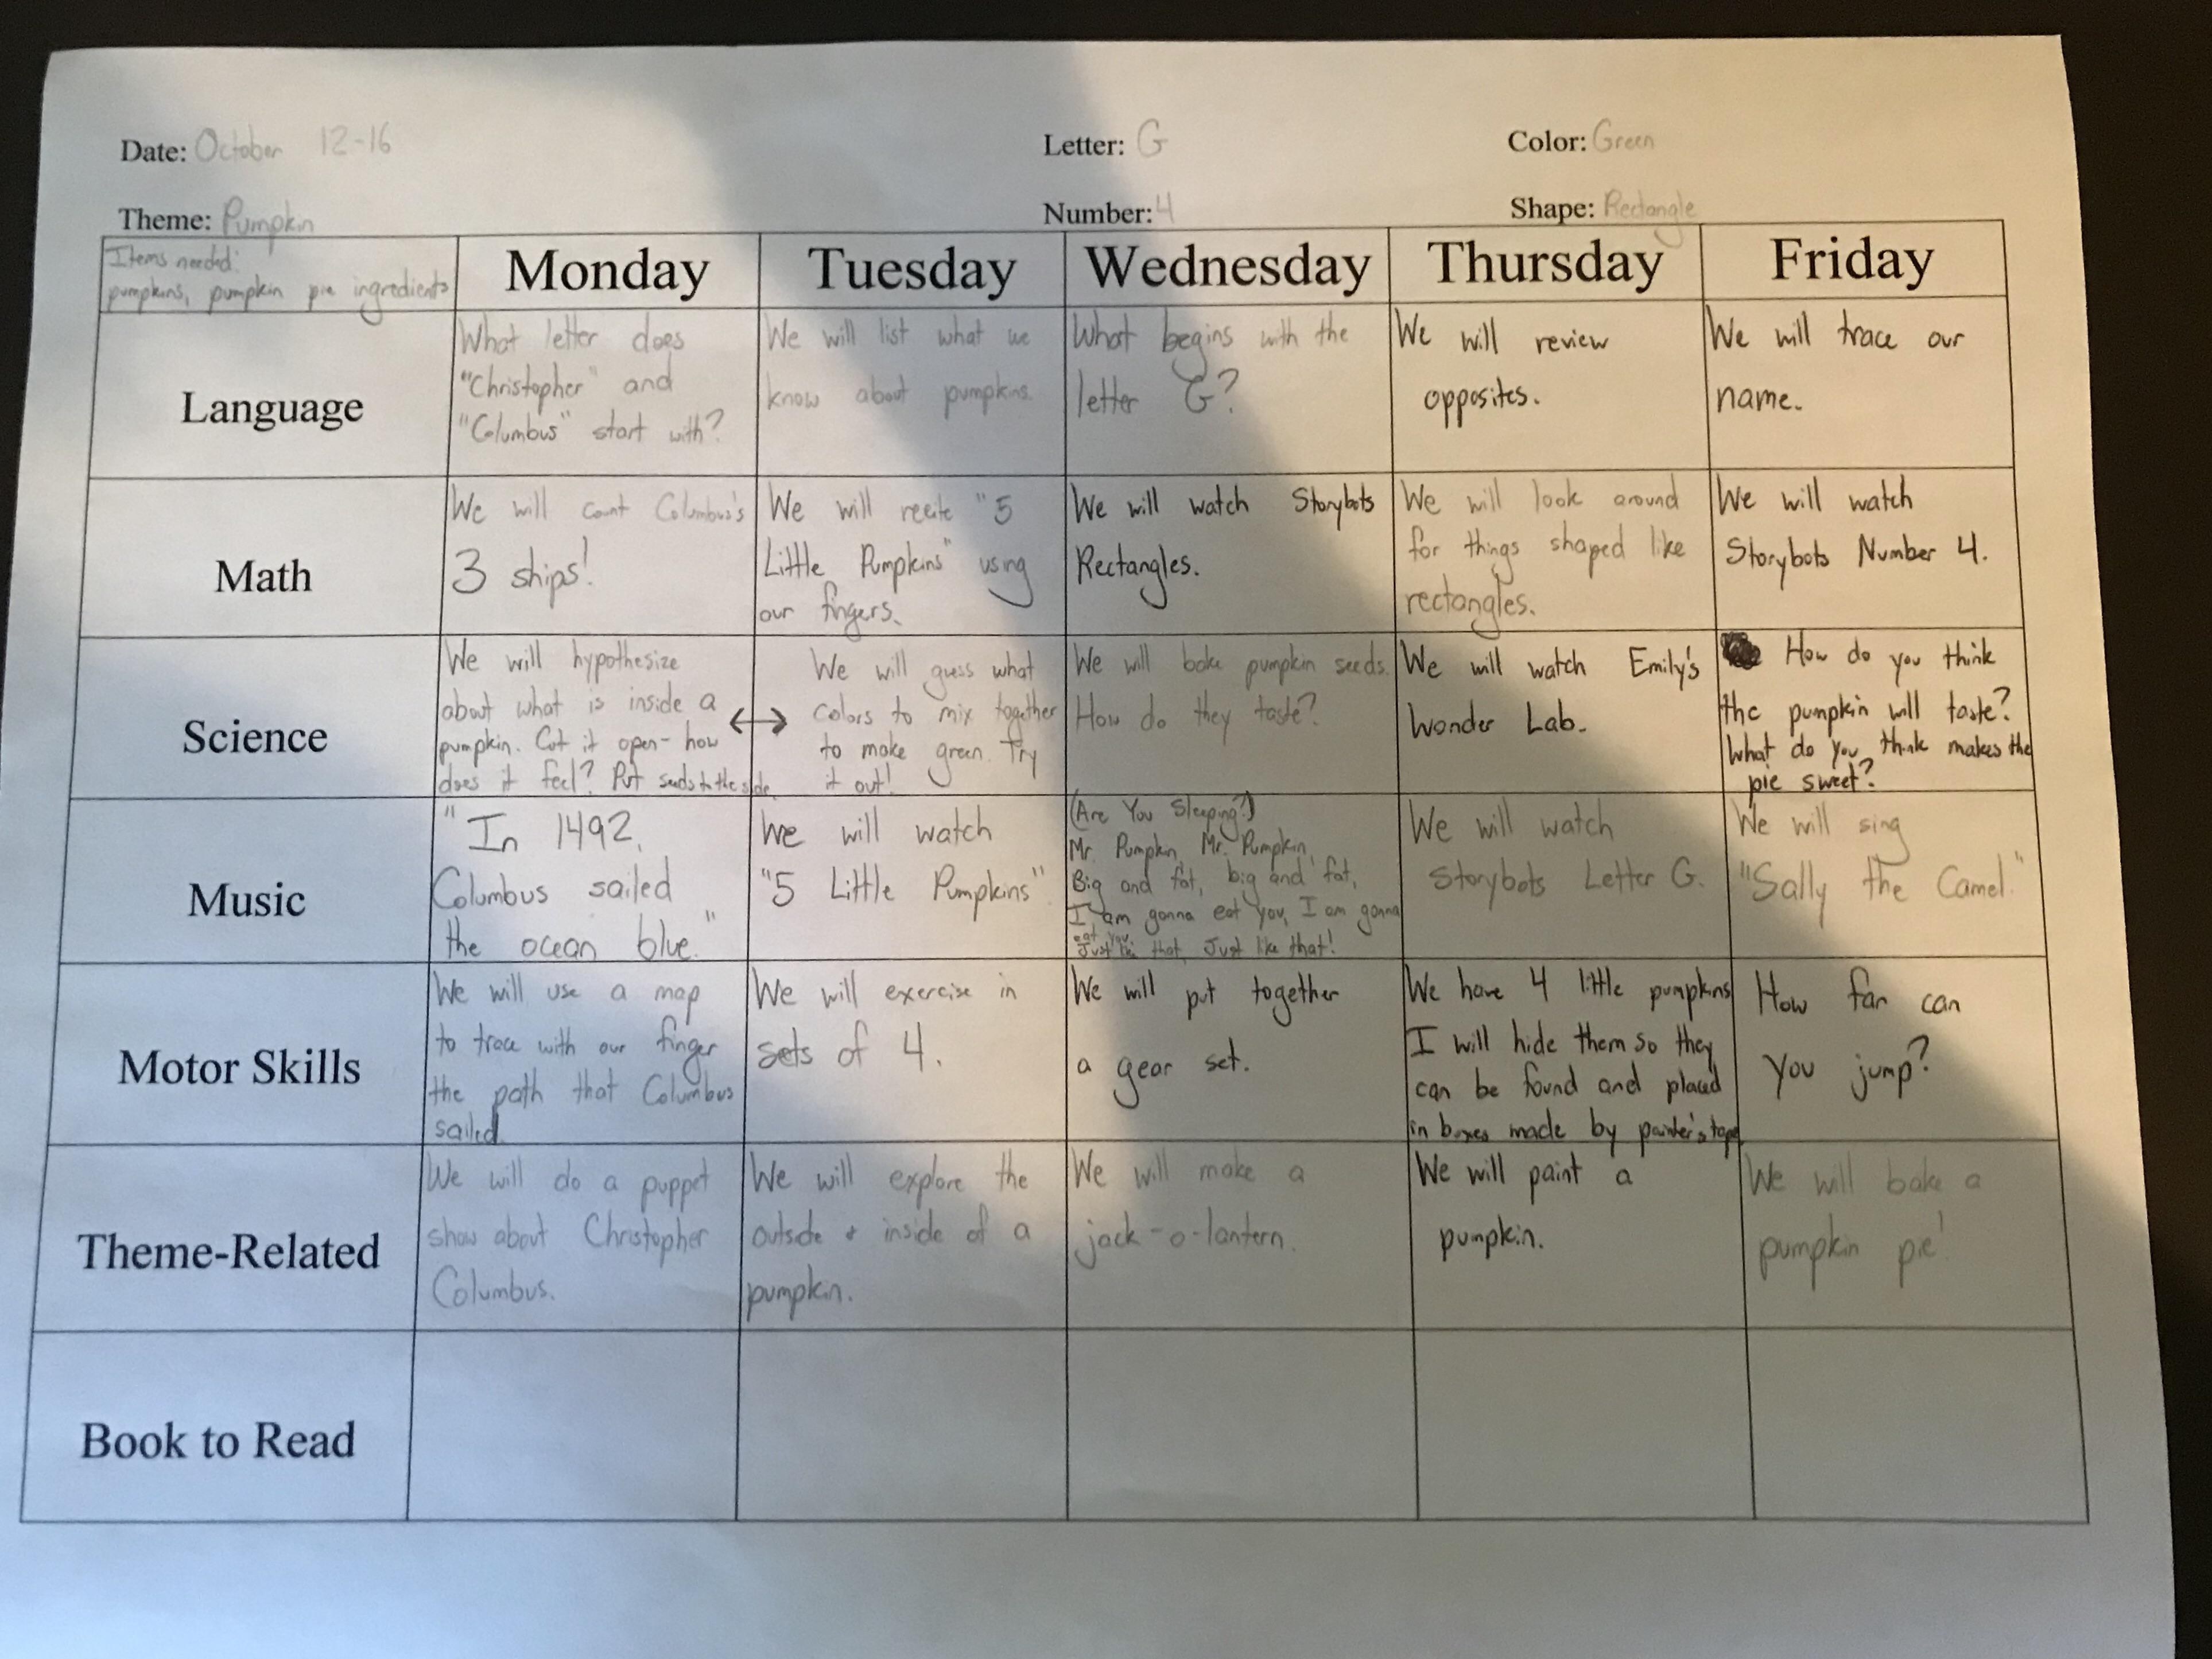 Date: October 12-16
Letter: G
Color: Green
Theme: Pumpkin
Number: 4
Shape: Rectangle
Items needed:
pumpkins, pumpkin pie ingredients
Monday
Tuesday
Wednesday
Thursday
Friday
Language
What letter does
"Christopher" and
"Columbus" start with?
We will list what we
know about pumpkins.
What begins with the
letter G?
We will review
opposites.
We will trace our
name.
Math
We will count Columbus's
3 ships!
We will recite "5
Little Pumpkins" using
our fingers.
We will watch Storybots
Rectangles.
We will look around
for things shaped like
rectangles.
We will watch
Storybots Number 4.
Science
We will hypothesize
about what is inside a
pumpkin. Cut it open- how
does it feel? Put seeds to the side.
We will guess what
colors to mix together
to make green. Try
it out!
We will bake pumpkin seeds.
How do they taste?
We will watch Emily's
Wonder Lab.
How do you think
the pumpkin will taste?
What do you think makes the
pie sweet?
Music
"In 1492,
Columbus sailed
the ocean blue."
We will watch
"5 Little Pumpkins".
(Are You Sleeping?)
Mr. Pumpkin, Mr. Pumpkin,
Big and fat, big and fat,
I am gonna eat you, I am gonna
eat you
Just like that, Just like that!
We will watch
Storybots Letter G.
We will sing
"Sally the Camel."
Motor Skills
We will use a map
to trace with our finger
the path that Columbus
sailed.
We will exercise in
sets of 4.
We will put together
a gear set.
We have 4 little pumpkins
I will hide them so they
can be found and placed
in boxes made by painter's tape
How far can
you jump?
Theme-Related
We will do a puppet
show about Christopher
Columbus.
We will explore the
outside + inside of a
pumpkin.
We will make a
jack-o-lantern.
We will paint a
pumpkin.
We will bake a
pumpkin pie!
Book to Read